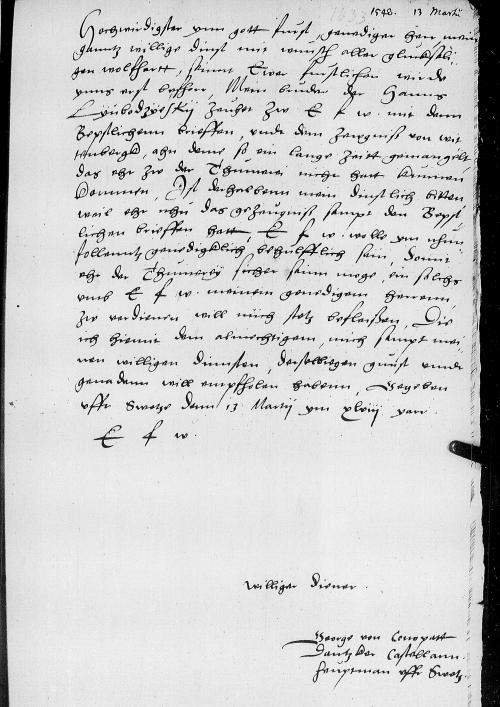 1548. 13 Martii
Hochwirdigster ynn gott furst, genediger herr, mein
gantz willige dinst mit wunsch aller gluckseli-
gen wolfhartt, seint Ewer furstlichen wirde
ynns erst beforn, Mein bruder der Hanns
zeuhet zw E f w. mit denn
Bepstlichenn brieffen, unde dem Zeugniss von wit
tenbergk, ahn deme ss ein lange Zeitt gemangelt
das ehr zw der Thumerei nicht hatt kunnen
kommen, Ist derhalbenn mein dinstlich bitten
weil ehr nhu das geZeugniss sampt den Bepst
lichen brieffen hatt, E f w. wolle ym nhun
follentz genedigklich behulfflich sein, domit
ehr der Thumerey sicher sann moge, ein solchs
umb E f w. meinem genedigem herrenn,
zw verdienen will mich stetz befleissen, Die
ich hiemit dem almechtigenn, mich sampt mei-
nen willigen dinsten, derselbiegen gunst unnd
genadenn will empfholen habenn, Gegeben
uffr Swetze denn 13 Martij ym xlviij yare.
E f w.
williger diener.
George von Conopatt
Dantzker Castellann.
Heuptman uffr Swetz.